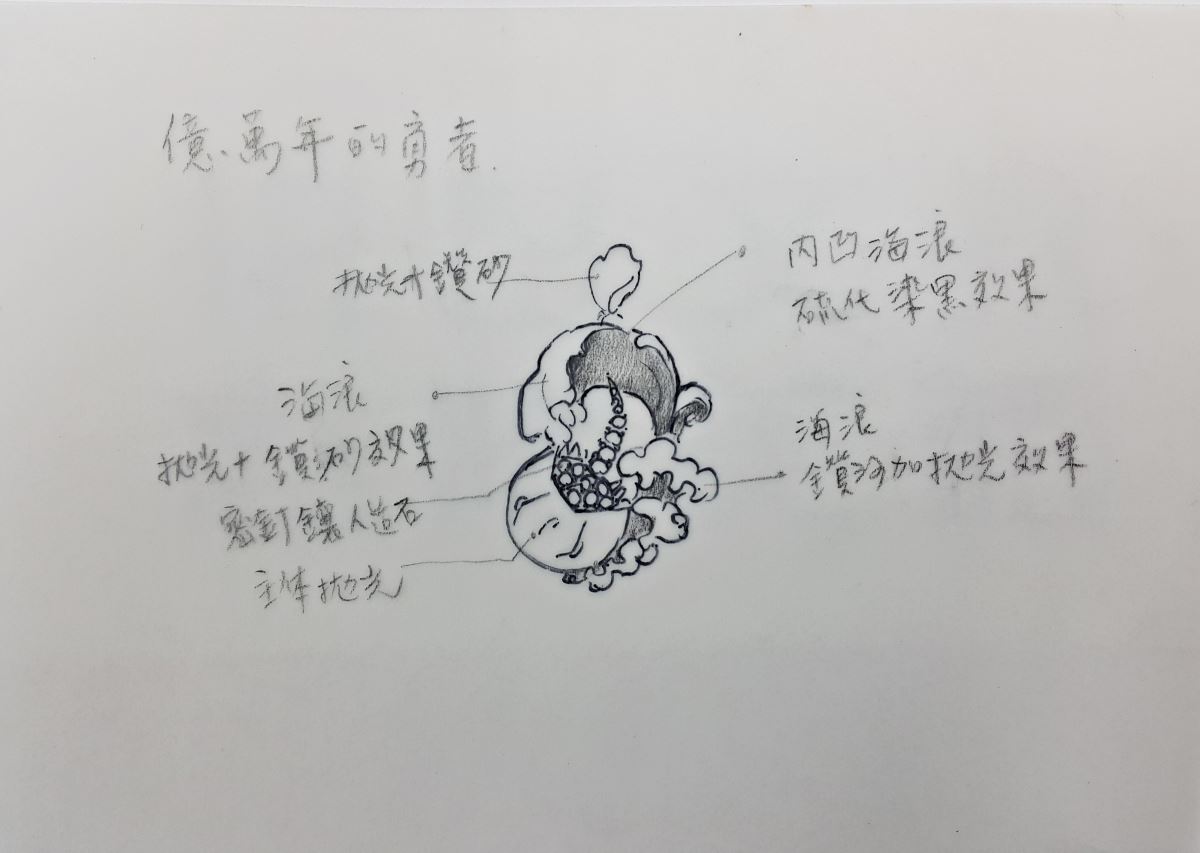 億萬年的勇者.
拋光+鑽砂
內凹海浪
硫化染黑效果
海浪
拋光+鑽砂效果
密釘鑲人造石
主体拋光
海浪
鑽砂加拋光效果